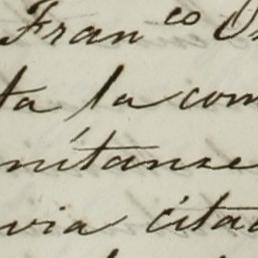 Fran co
ta la com
mítanse
via cita